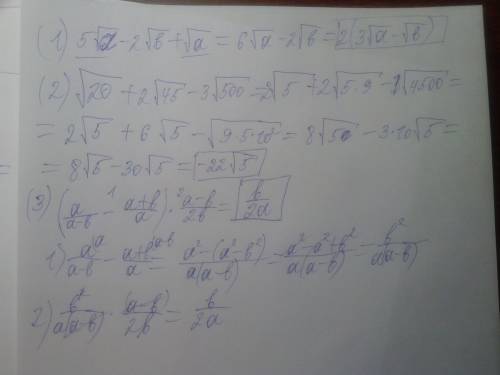 (1) 5√a - 2√b + √a = 6√a - 2√b = 2(3√a - √b)
(2) √20 + 2√45 - 3√500 = 2√5 + 2√5·9 - √4500 =
= 2√5 + 6√5 - √9·5·10² = 8√5 - 3·10√5 =
= 8√5 - 30√5 = -22√5
(3) (a/(a-b) - (a+b)/a) ·² (a-b)/2b = b/2a
1) a^(a)/(a-b) - (a+b)^(a-b)/a = (a² - (a² - b²))/(a(a-b)) = (a² - a² + b²)/(a(a-b)) = b²/(a(a-b))
2) b²/(a(a-b)) · (a-b)/2b = b/2a